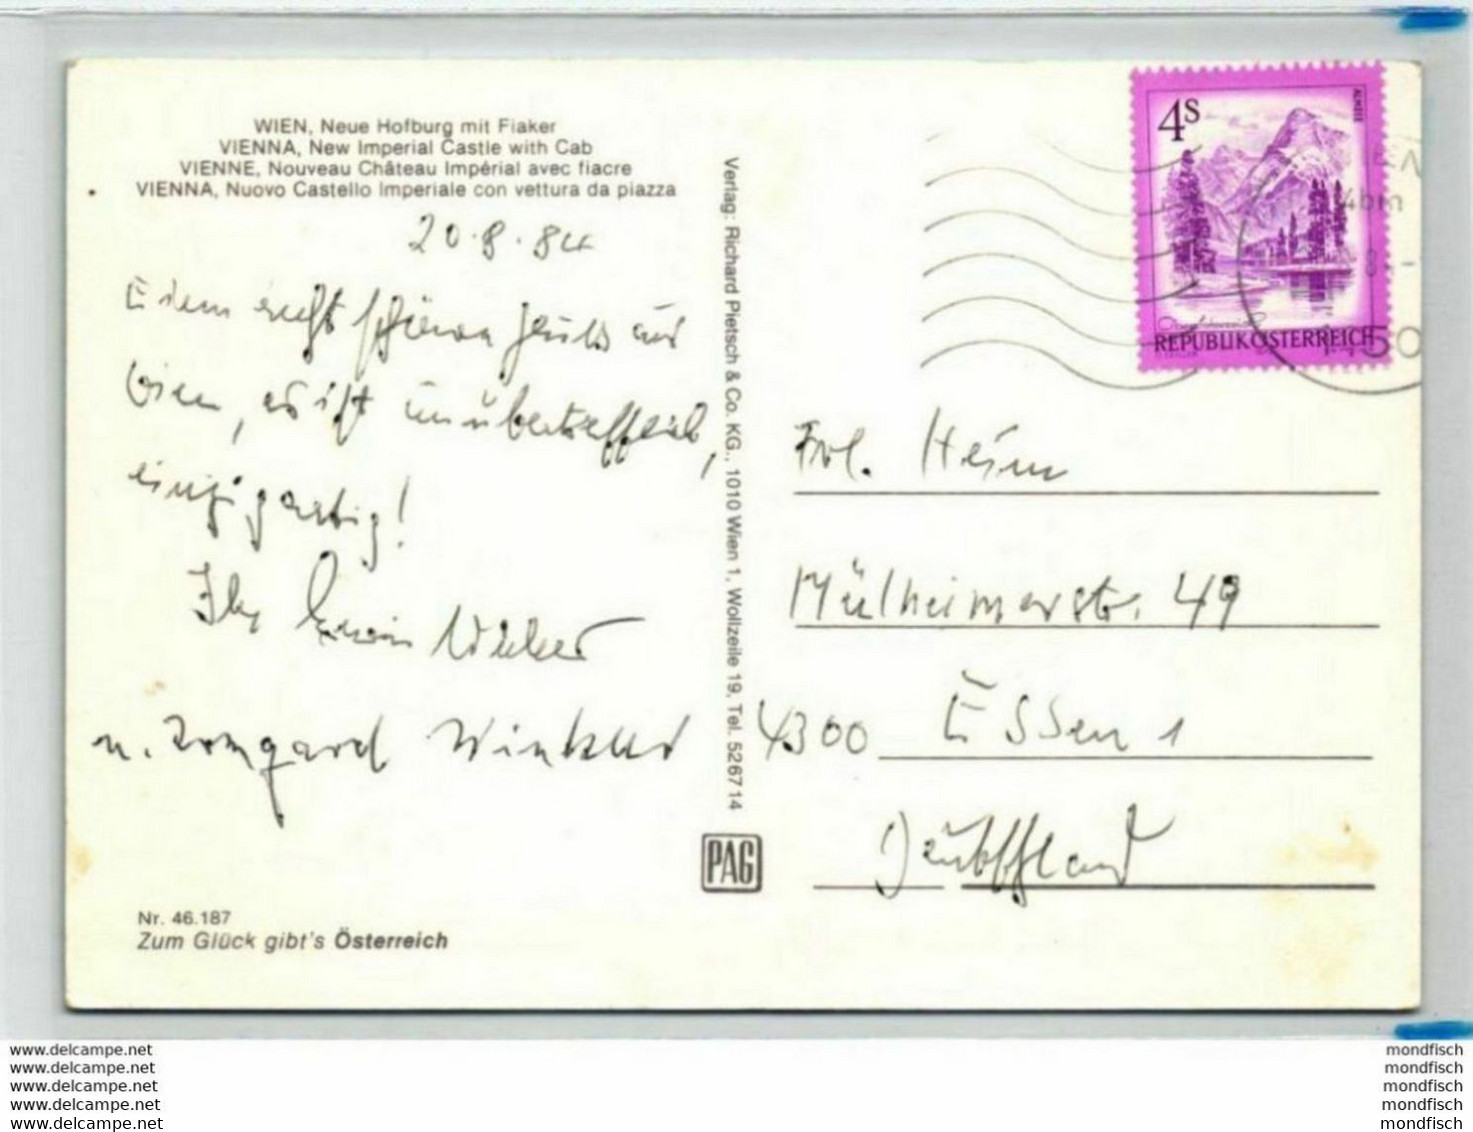 WIEN, Neue Hofburg mit Fiaker
VIENNA, New Imperial Castle with Cab
VIENNE, Nouveau Château Impérial avec fiacre
VIENNA, Nuovo Castello Imperiale con vettura da piazza
20.8.84
recht schönen Gruß aus
Wien, es ist unübertrefflich,
einzigartig!
Ihr Erwin Winkler
u. Irmgard Winkler
Nr. 46.187
Zum Glück gibt's Österreich
Verlag: Richard Pietsch & Co. KG., 1010 Wien 1, Wollzeile 19, Tel. 526714
PAG
4S
ALMSEE
REPUBLIK ÖSTERREICH
50
Frl. Heim
Mülheimerstr. 49
4300 Essen 1
Deutschland
www.delcampe.net
www.delcampe.net
www.delcampe.net
www.delcampe.net
www.delcampe.net
mondfisch
mondfisch
mondfisch
mondfisch
mondfisch